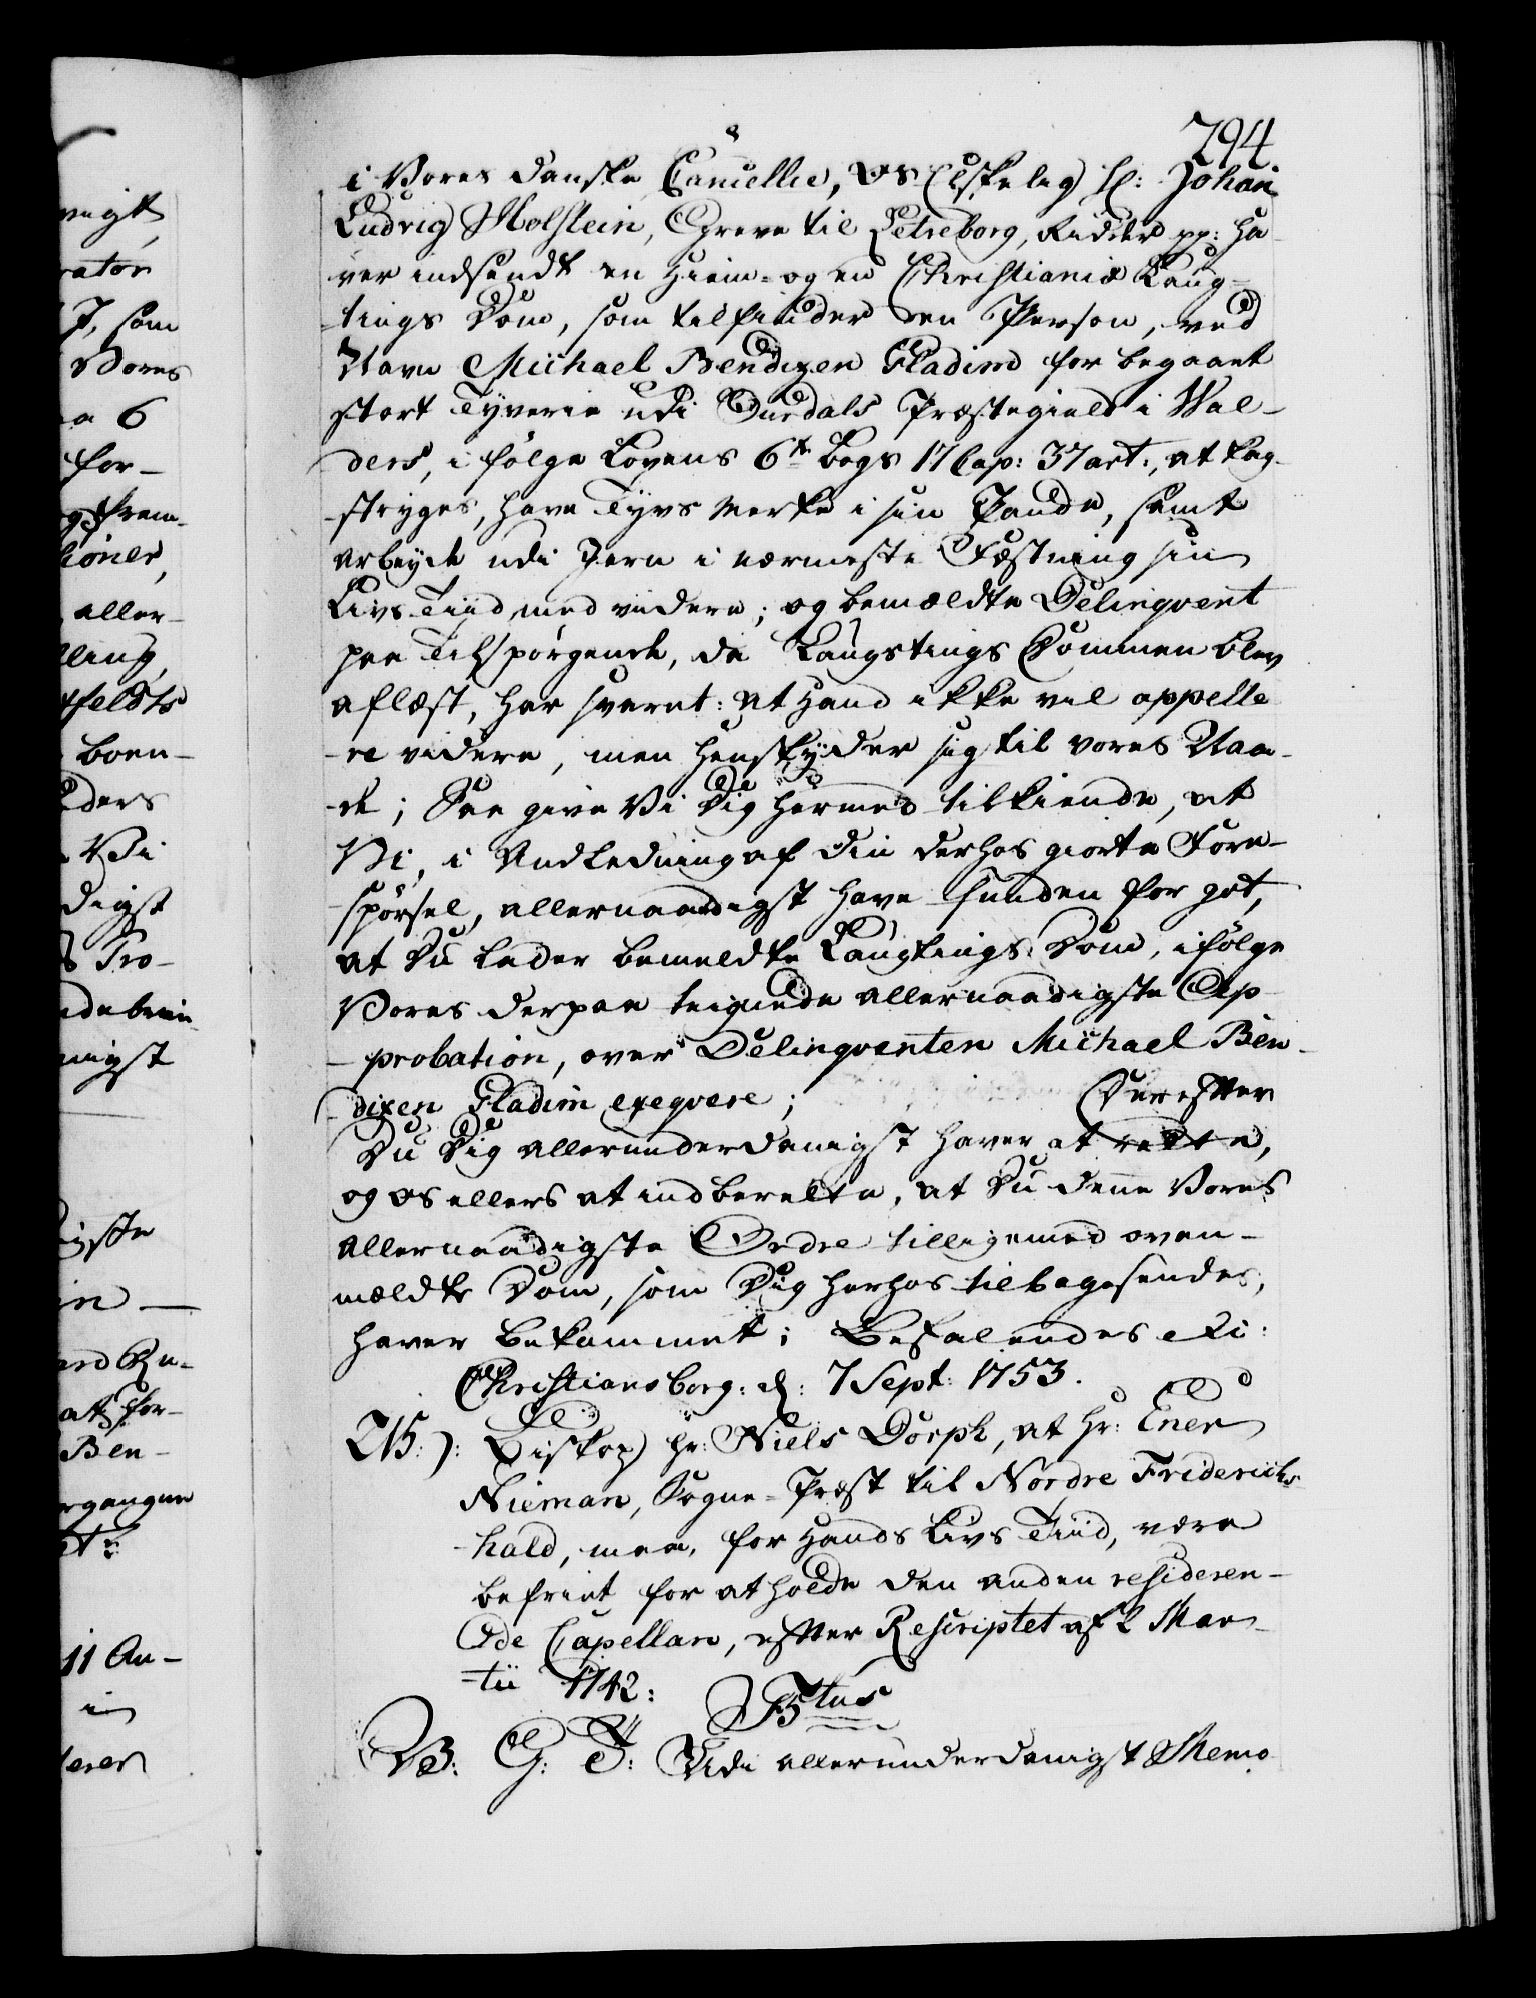 294
i Vores danske Cancellie, Os Elskelig Hr: Johan
Ludvig Holstein, Greve til Letreborg, Ridder pp: ha-
ver indsendt en Hiem- og en Christianiæ Laug-
-tings Dom, som tilfinder en Person, ved
Navn Michael Bendixen Gladim for begaaet
stort Tyverie udi Ourdals Præstegield i Wal-
ders, i følge Lovens 6te Bogs 17 Cap: 37 art:, at kag-
-stryges, have Tyvs Merke i sin Pande, samt
arbeyde udi Jern i nærmeste Fæstning sin
Livs Tiid med videre; og bemældte Delinqvent
paa Tilspørgende, da Laugtings Dommen blev
aflæst, har svaret: at Hand ikke vil appelle-
-re videre, men henskyder sig til vores Naa-
-de; Saa give Vi Dig hermed tilkiende, at
Vi, i Andledning af din derhos giorte Fore-
-spørsel, allernaadigst have funden for got,
at Du lader bemeldte Laugtings Dom, i følge
Vores derpaa teignede allernaadigste Ap-
-probation, over Delinqventen Michael Ben-
-dixen Gladim exeqvere; Derefter
Du Dig allerunderdanigst haver at rette,
og os ellers at indberette, at Du denne Vores
allernaadigste Ordre tilligemed oven-
mældte Dom, som Dig herhos tilbagesendes,
haver bekommet; Befalendes etc:
Christiansborg: d: 7 Sept: 1753.
215:): Biskop Hr: Niels Dorph, at Hr: Ener
Nieman, Sogne-Præst til Nordre Friderichs-
-hald, maa, for Hands Livs Tiid, være
befriet for at holde den anden residere-
de Capellan, efter Rescriptet af 2 Mar-
-tii 1742:
F5tus
V: G: T: Udi allerunderdanigst Memo-